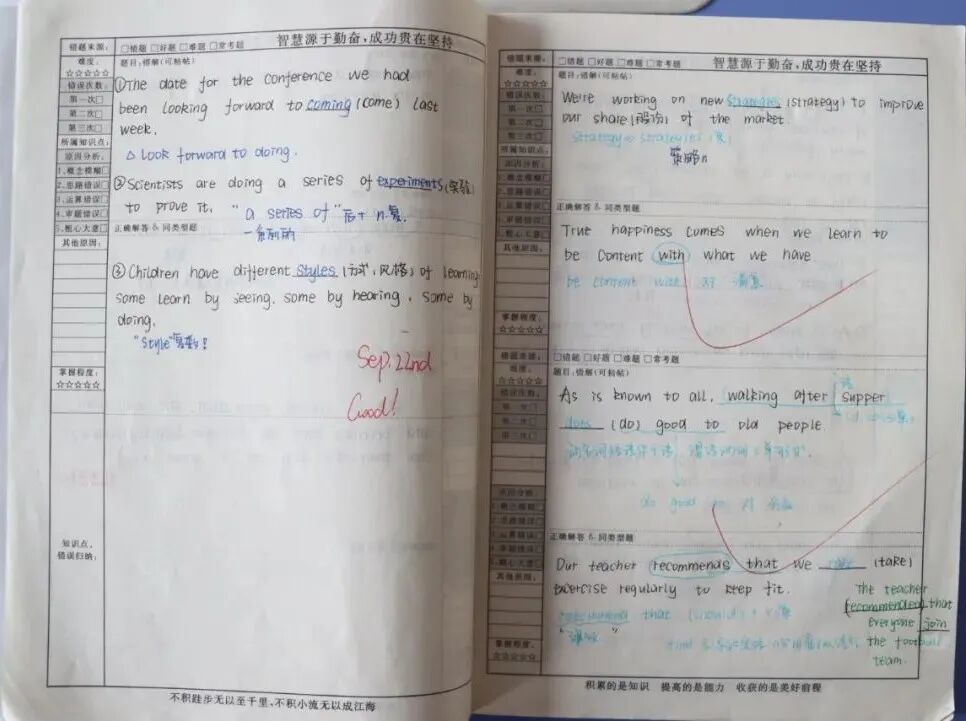 错题来源: □错题 □好题 □难题 □常考题 智慧源于勤奋,成功贵在坚持
难度:
☆☆☆☆☆
题目:错解(可粘贴)
错误次数:
第一次□
第二次□
第三次□
所属知识点:
原因分析:
1.概念模糊□
2.思路错误□
3.运算错误□
4.审题错误□
5.粗心大意□
其他原因:
①The date for the conference we had
been looking forward to coming (come) last
week.
△ look forward to doing.
②Scientists are doing a series of experiments (实验)
to prove it. "a series of" 后+ n.复.
一系列的
正确解答&同类型题
③Children have different styles (方式,风格) of learning:
some learn by seeing, some by hearing, some by
doing.
"style"复数!
Sep.22nd
Good!
掌握程度:
☆☆☆☆☆
知识点,
错误归纳:
不积跬步无以至千里,不积小流无以成江海
错题来源: □错题 □好题 □难题 □常考题 智慧源于勤奋,成功贵在坚持
难度:
☆☆☆☆☆
题目:错解(可粘贴)
错误次数:
第一次□
第二次□
第三次□
所属知识点:
原因分析:
1.概念模糊□
2.思路错误□
3.运算错误□
4.审题错误□
5.粗心大意□
其他原因:
We're working on new strategies (strategy) to improve
our share (股份) of the market.
strategy→strategies (复)
策略n
正确解答&同类型题
True happiness comes when we learn to
be content with what we have
be content with 对 满意
掌握程度:
☆☆☆☆☆
错题来源: □错题 □好题 □难题 □常考题
难度:
☆☆☆☆☆
题目:错解(可粘贴)
错误次数:
第一次□
第二次□
第三次□
As is known to all, walking after supper
does (do) good to old people.
do good to 对
原因分析:
1.概念模糊□
2.思路错误□
3.运算错误□
4.审题错误□
5.粗心大意□
其他原因:
正确解答&同类型题
Our teacher recommends that we take (take)
exercise regularly to keep fit.
recommend that (should)
The teacher
recommended that
everyone join
the football
team.
掌握程度:
☆☆☆☆☆
积累的是知识 提高的是能力 收获的是美好前程